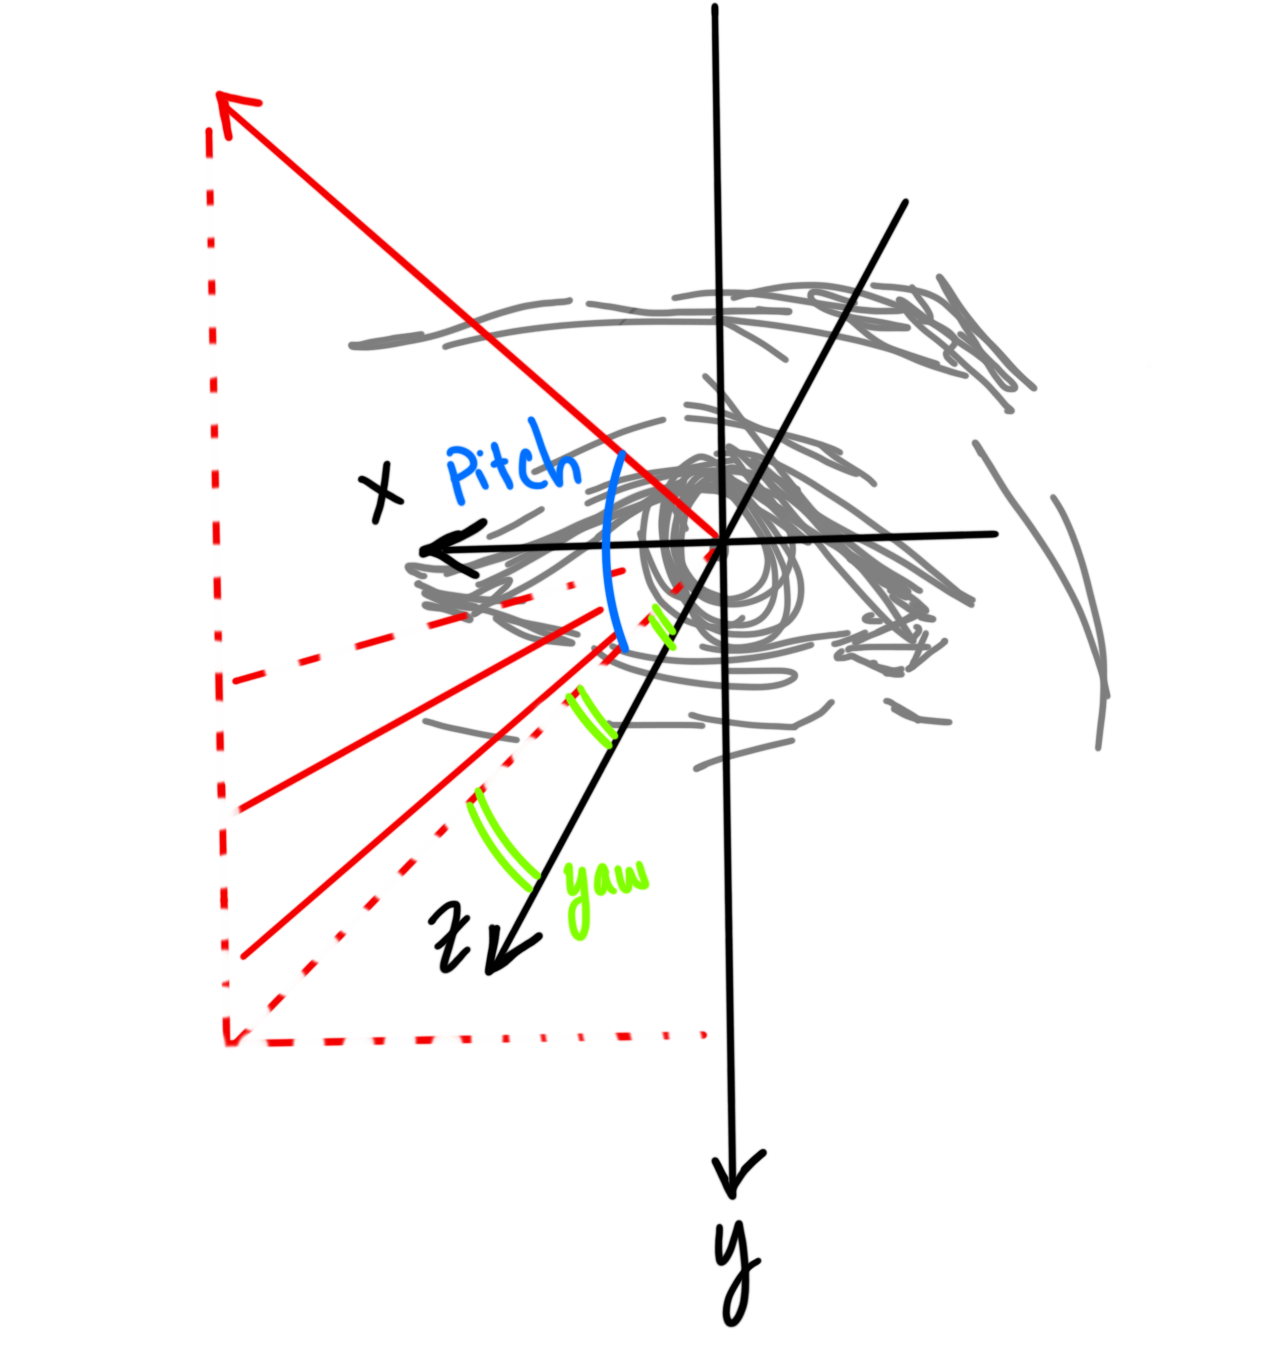 Pitch
X
yaw
z
y